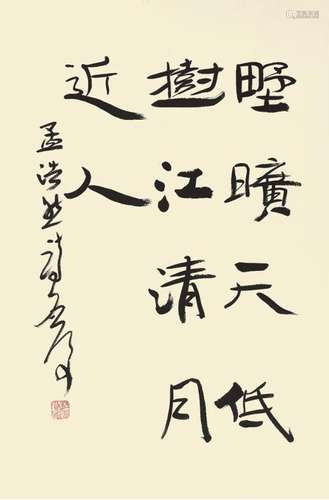 野曠天低
樹江清月
近人
孟浩然詩